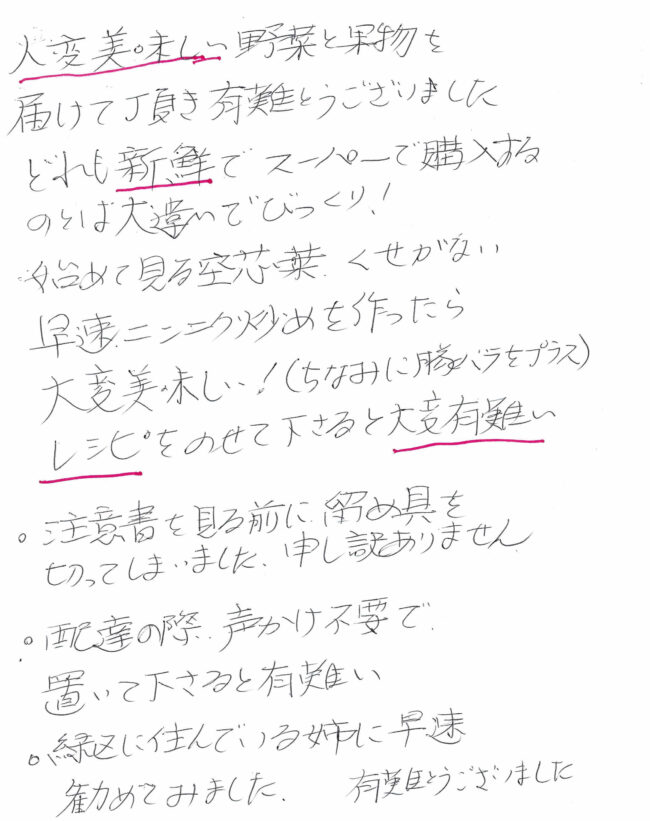 大変美味しい野菜と果物を
届けて頂き有難とうございました
どれも新鮮でスーパーで購入する
のとは大違いでびっくり!
始めて見る空芯菜.くせがない
早速ニンニク炒めを作ったら
大変美味しい!(ちなみに豚バラをプラス)
レシピをのせて下さると大変有難い
。注意書を見る前に留め具を
切ってしまいました.申し訳ありません
。配達の際.声かけ不要で
置いて下さると有難い
。緑区に住んでいる姉に早速
勧めてみました. 有難とうございました